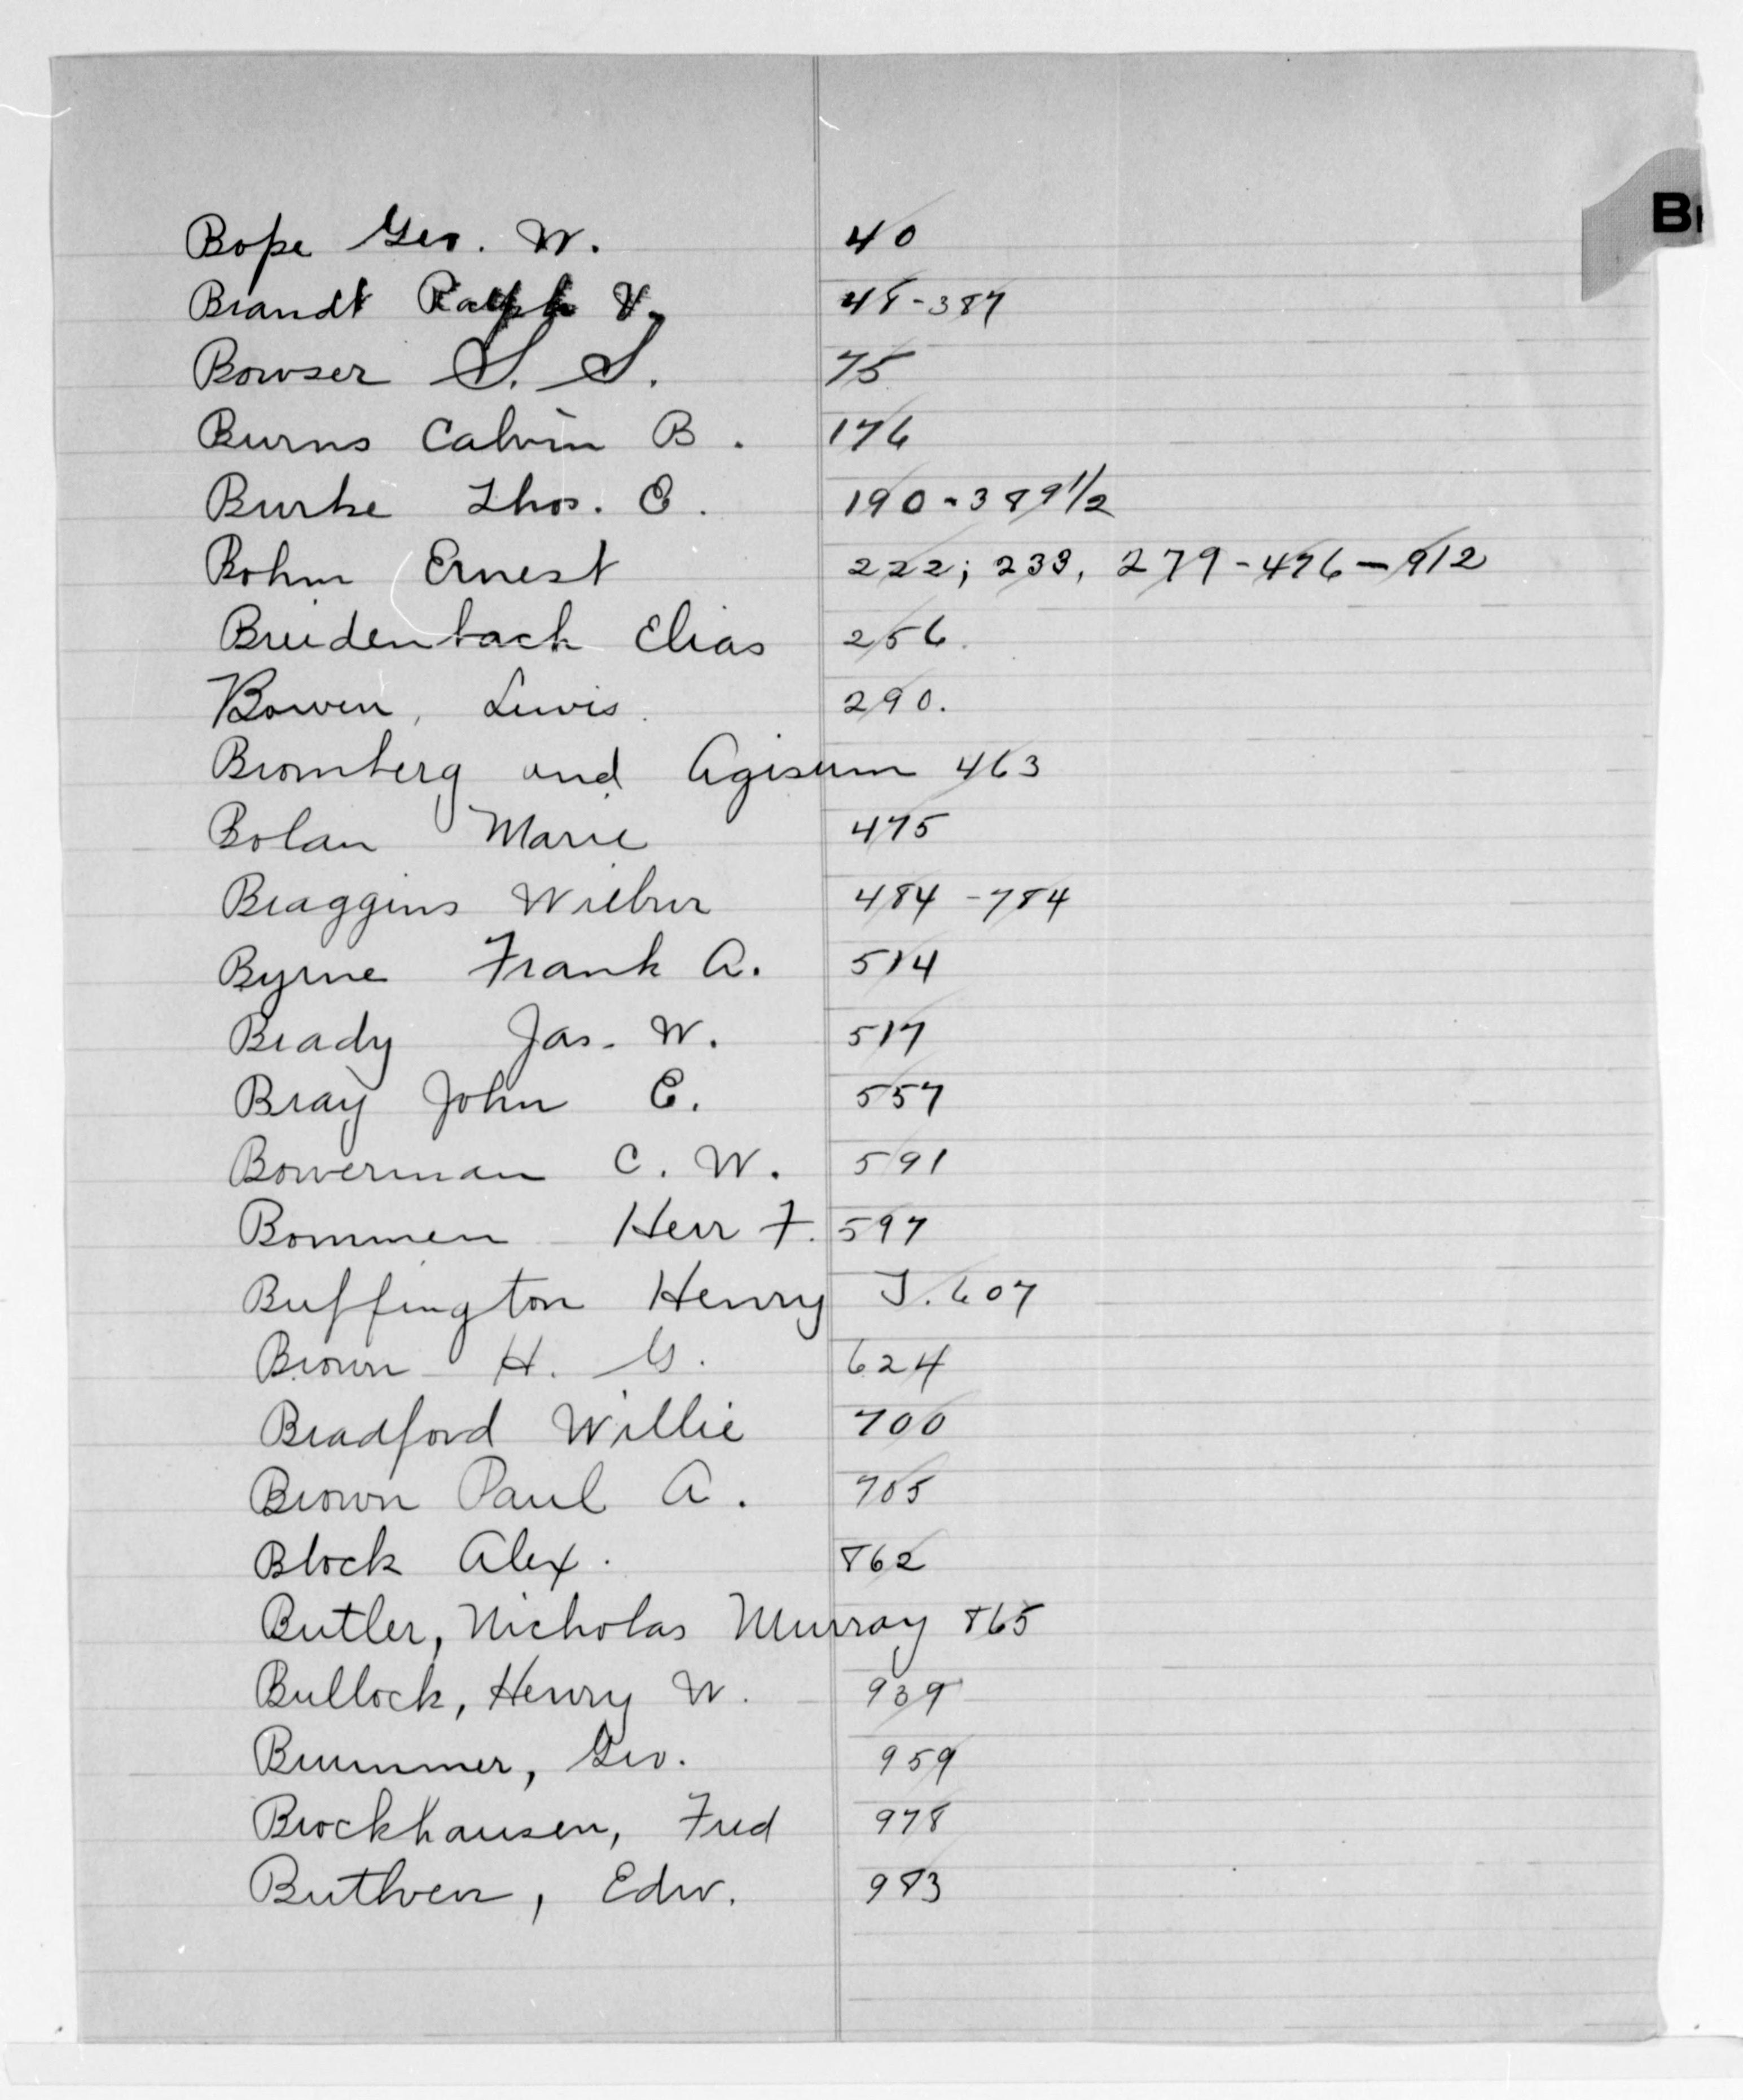 B
Bope Geo. W. 40
Brandt Ralph V. 48-387
Bowser S. S. 75
Burns Calvin B. 176
Burke Thos. E. 190-389 1/2
Bohm Ernest 222; 233, 279-476-912
Breidenbach Elias 256.
Bowen, Lewis. 290.
Bromberg and Agisum 463
Bolan Marie 475
Braggins Wilbur 484-784
Byrne Frank A. 514
Brady Jas. W. 517
Bray John E. 557
Bowerman C. W. 591
Bommen Herr F. 597
Buffington Henry J. 607
Brown H. G. 624
Bradford Willie 700
Brown Paul A. 705
Block Alex. 862
Butler, Nicholas Murray 865
Bullock, Henry W. 939
Brummer, Geo. 959
Brockhausen, Fred 978
Buthven, Edw. 983